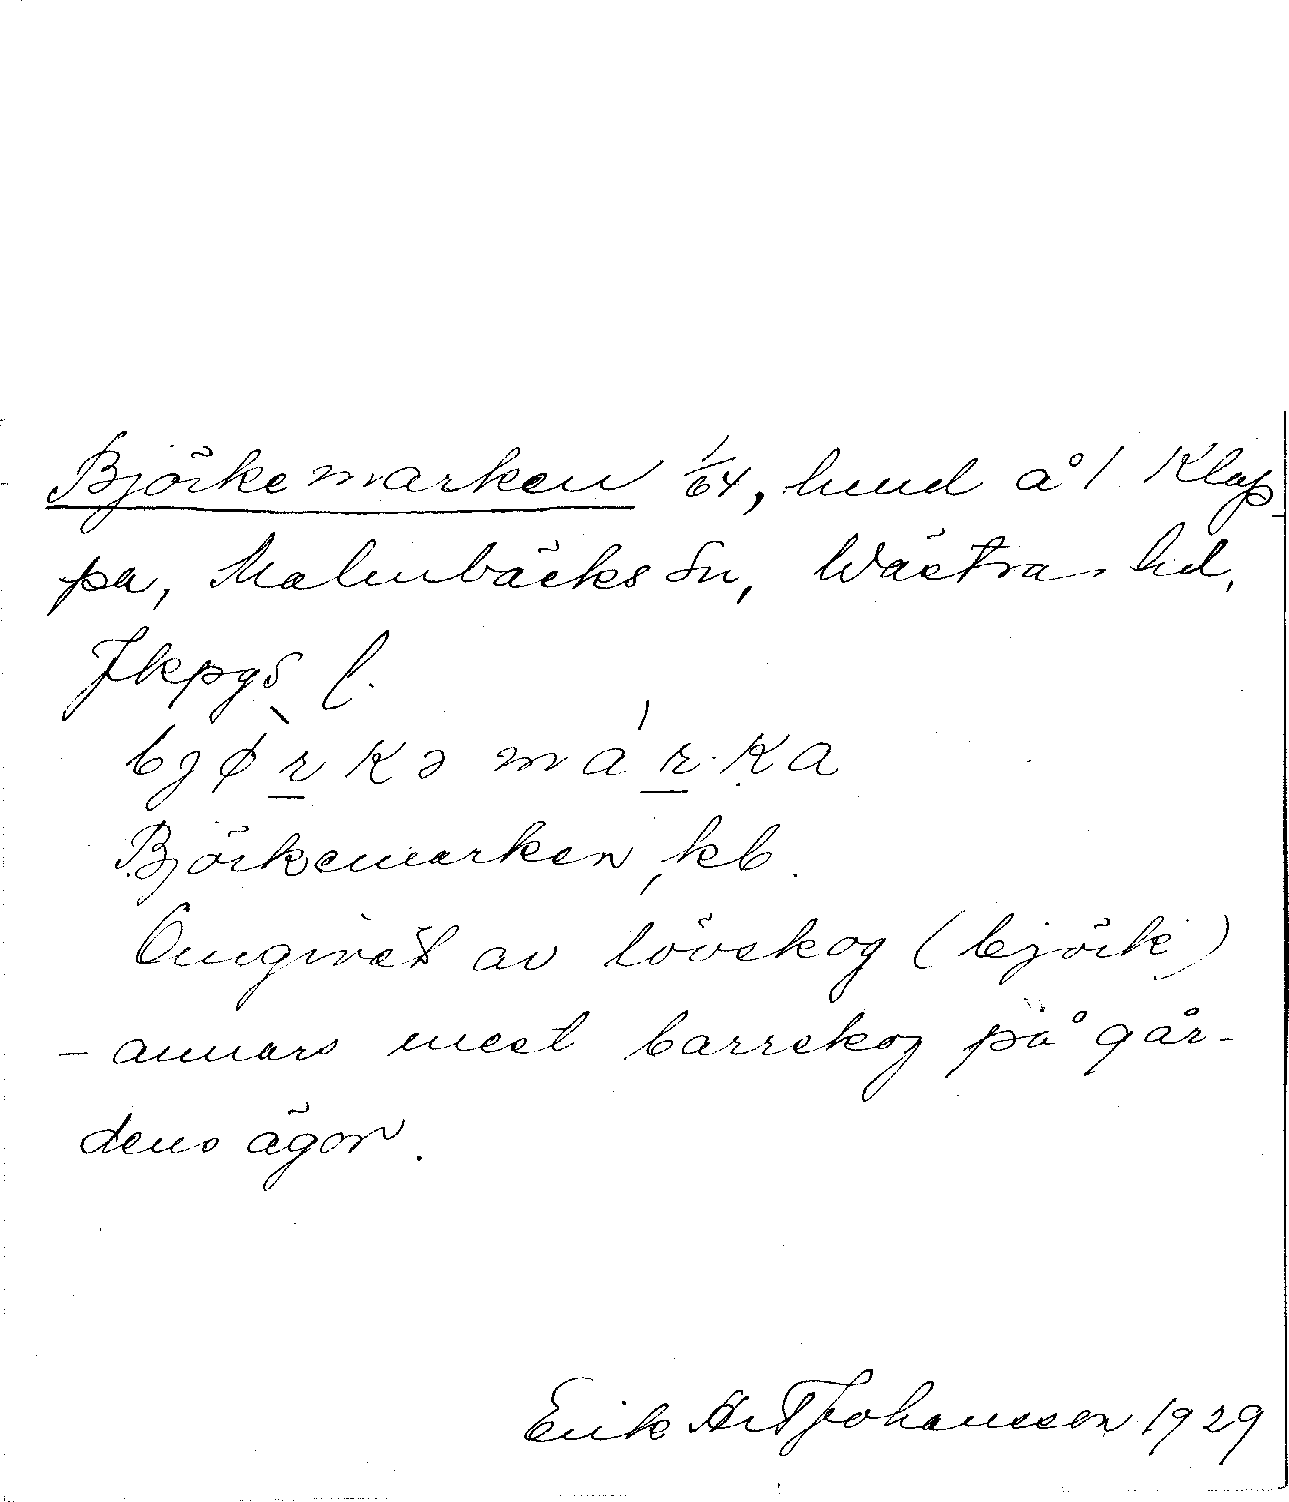 Björkemarken 1/64, hmd å 1 Klap-
pa, Malmbäcks sn, Västra hd,
Jkpgs l.
bjørkə márka
Björkemarken, kb.
Omgivet av lövskog (björk)
- annars mest barrskog på går-
dens ägor.
Erik Art Johansson 1929